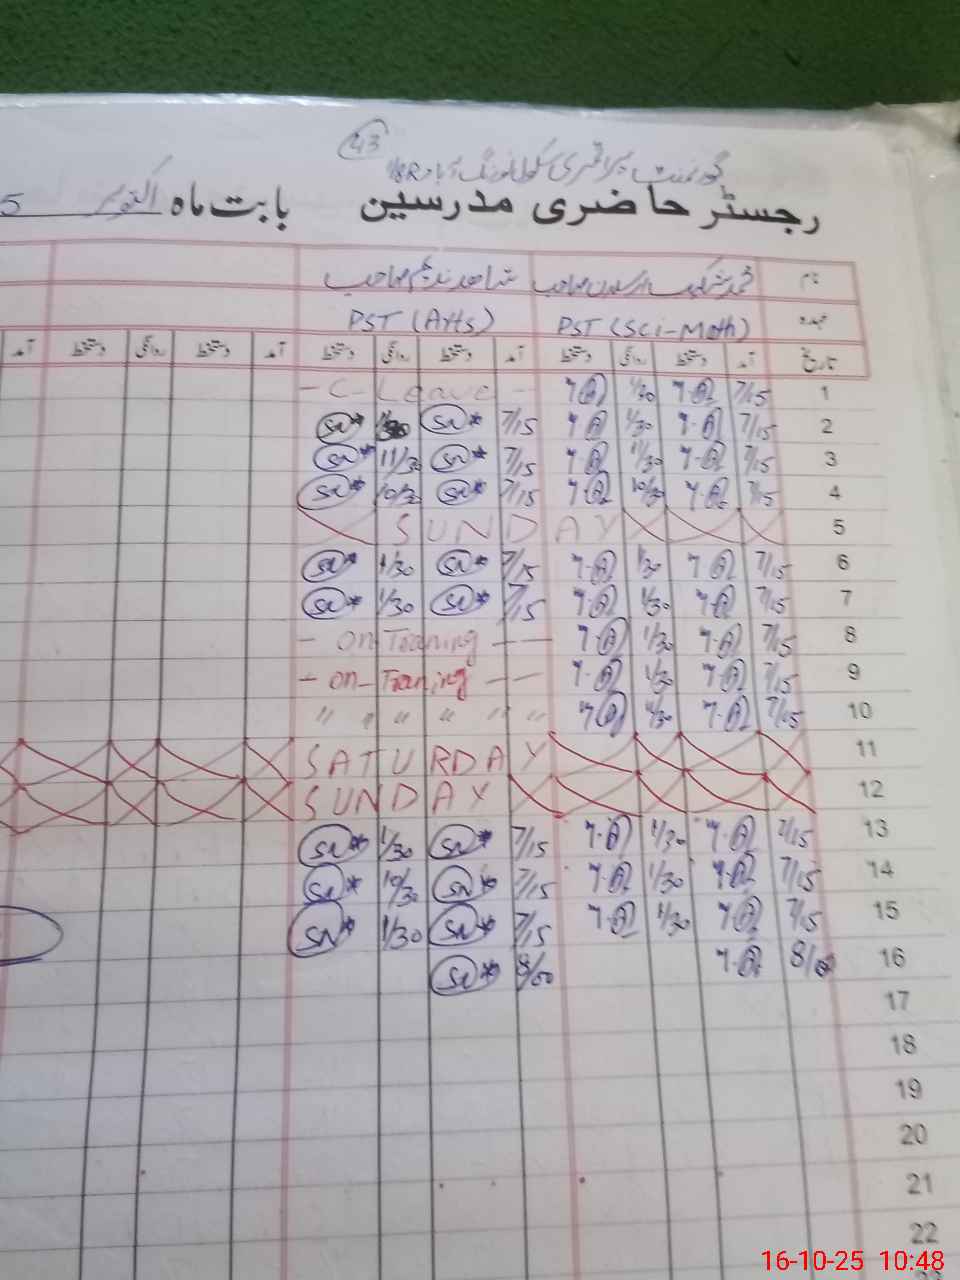 43
گورنمنٹ پرائمری سکول 18R
رجسٹر حاضری مدرسین بابت ماہ اکتوبر 5
نام
شاھد ندیم صاحب
عہدہ PST (Sci-Math) PST (Arts)
تاریخ آمد دستخط روانگی دستخط آمد دستخط روانگی دستخط آمد دستخط روانگی دستخط آمد
- C- Leave - 1/30 7/15 1
SN* SN* 7/15 1/30 7/15 2
SN* 11/30 SN* 7/15 11/30 7/15 3
SN* 10/30 SN* 7/15 10/30 7/15 4
SUNDAY 5
SN* 1/30 SN* 7/15 1/30 7/15 6
SN* 1/30 SN* 7/15 1/30 7/15 7
- on Traning - - 1/30 7/15 8
- on - Traning - - 1/30 7/15 9
" " " " " " 1/30 7/15 10
SATURDAY 11
SUNDAY 12
SN* 1/30 SN* 7/15 1/30 7/15 13
SN* 10/30 SN* 7/15 1/30 7/15 14
SN* 1/30 SN* 7/15 1/30 7/15 15
SN* 8/00 8/00 16
17
18
19
20
21
22
16-10-25 10:48